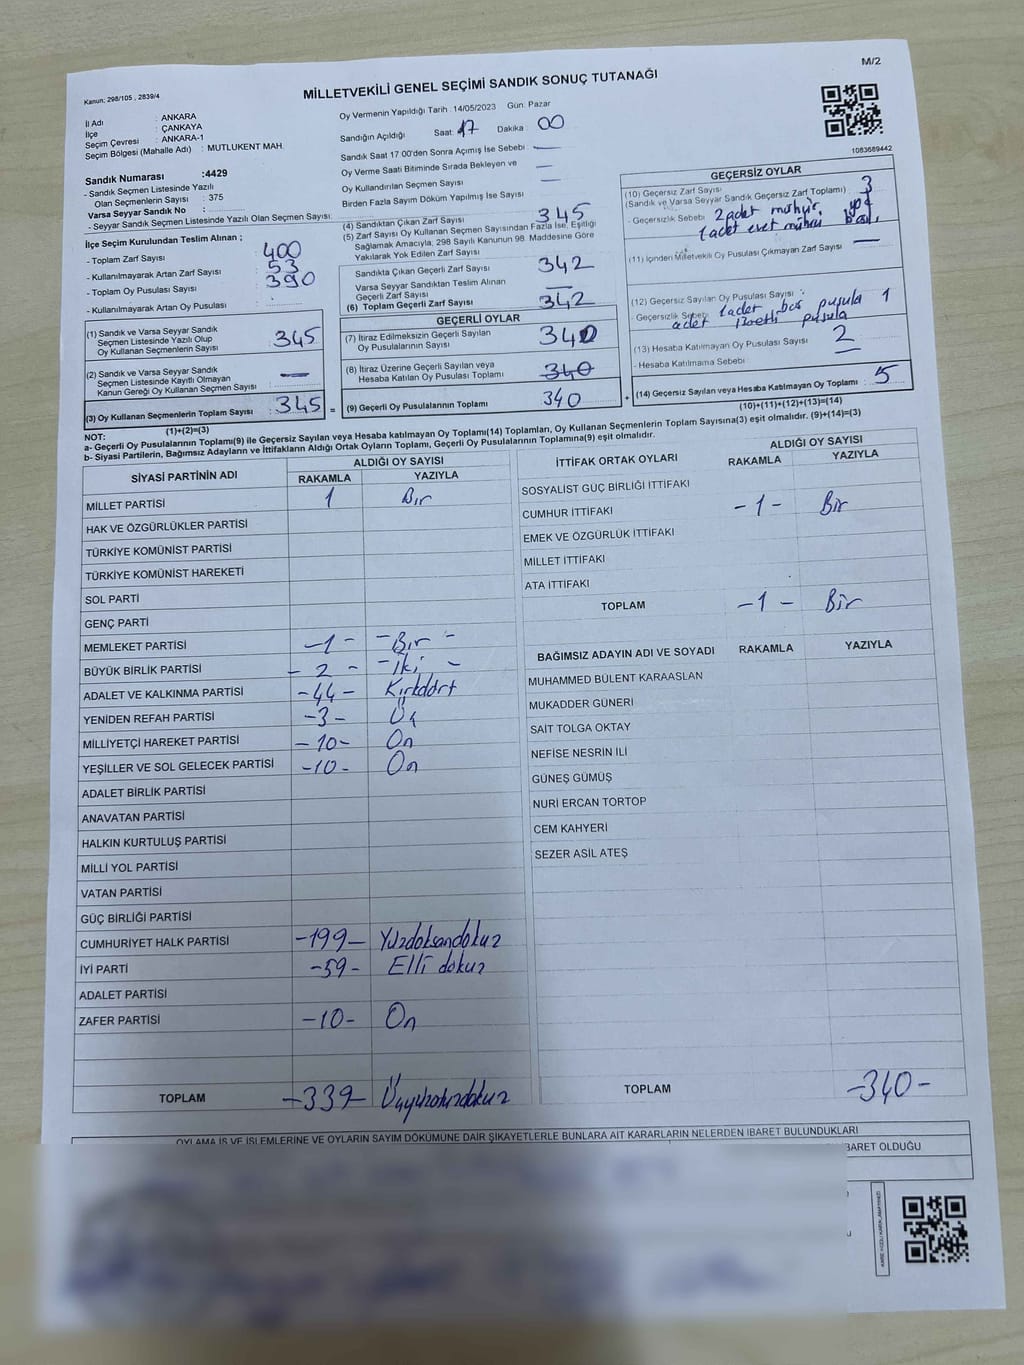 M/2
Kanun: 298/105 , 2839/4
MİLLETVEKİLİ GENEL SEÇİMİ SANDIK SONUÇ TUTANAĞI
İl Adı : ANKARA
İlçe : ÇANKAYA
Seçim Çevresi : ANKARA-1
Seçim Bölgesi (Mahalle Adı) : MUTLUKENT MAH.
Sandık Numarası :4429
- Sandık Seçmen Listesinde Yazılı
Olan Seçmenlerin Sayısı : 375
Varsa Seyyar Sandık No :
- Seyyar Sandık Seçmen Listesinde Yazılı Olan Seçmen Sayısı:
Oy Vermenin Yapıldığı Tarih : 14/05/2023 Gün: Pazar
Sandığın Açıldığı Saat: 17 Dakika : 00
Sandık Saat 17 00'den Sonra Açımış İse Sebebi : —
Oy Verme Saati Bitiminde Sırada Bekleyen ve
Oy Kullandırılan Seçmen Sayısı —
Birden Fazla Sayım Döküm Yapılmış İse Sayısı —
1083689442
İlçe Seçim Kurulundan Teslim Alınan ;
- Toplam Zarf Sayısı : 400
- Kullanılmayarak Artan Zarf Sayısı : 53
- Toplam Oy Pusulası Sayısı : 390
- Kullanılmayarak Artan Oy Pusulası :
(1) Sandık ve Varsa Seyyar Sandık
Seçmen Listesinde Yazılı Olup
Oy Kullanan Seçmenlerin Sayısı : 345
(2) Sandık ve Varsa Seyyar Sandık
Seçmen Listesinde Kayıtlı Olmayan
Kanun Gereği Oy Kullanan Seçmen Sayısı : —
(3) Oy Kullanan Seçmenlerin Toplam Sayısı : 345 =
(1)+(2)=(3)
(4) Sandıktan Çıkan Zarf Sayısı 345
(5) Zarf Sayısı Oy Kullanan Seçmen Sayısından Fazla İse, Eşitliği
Sağlamak Amacıyla, 298 Sayılı Kanunun 98. Maddesine Göre
Yakılarak Yok Edilen Zarf Sayısı
Sandıkta Çıkan Geçerli Zarf Sayısı 342
Varsa Seyyar Sandıktan Teslim Alınan
Geçerli Zarf Sayısı —
(6) Toplam Geçerli Zarf Sayısı 342
GEÇERLİ OYLAR
(7) İtiraz Edilmeksizin Geçerli Sayılan
Oy Pusulalarının Sayısı 340
(8) İtiraz Üzerine Geçerli Sayılan veya
Hesaba Katılan Oy Pusulası Toplamı 340
(9) Geçerli Oy Pusulalarının Toplamı 340 +
GEÇERSİZ OYLAR
(10) Geçersiz Zarf Sayısı 3
(Sandık ve Varsa Seyyar Sandık Geçersiz Zarf Toplamı) :
- Geçersizlik Sebebi 2 adet mühür
1 adet evet mührü
(11) İçinden Milletvekili Oy Pusulası Çıkmayan Zarf Sayısı —
(12) Geçersiz Sayılan Oy Pusulası Sayısı : 1
- Geçersizlik Sebebi 1 adet boş pusula
adet pusula
(13) Hesaba Katılmayan Oy Pusulası Sayısı 2
- Hesaba Katılmama Sebebi —
(14) Geçersiz Sayılan veya Hesaba Katılmayan Oy Toplamı : 5
(10)+(11)+(12)+(13)=(14)
NOT:
a- Geçerli Oy Pusulalarının Toplamı(9) ile Geçersiz Sayılan veya Hesaba katılmayan Oy Toplamı(14) Toplamları, Oy Kullanan Seçmenlerin Toplam Sayısına(3) eşit olmalıdır. (9)+(14)=(3)
b- Siyasi Partilerin, Bağımsız Adayların ve İttifakların Aldığı Ortak Oyların Toplamı, Geçerli Oy Pusulalarının Toplamına(9) eşit olmalıdır.
SİYASİ PARTİNİN ADI ALDIĞI OY SAYISI
RAKAMLA YAZIYLA
MİLLET PARTİSİ 1 Bir
HAK VE ÖZGÜRLÜKLER PARTİSİ
TÜRKİYE KOMÜNİST PARTİSİ
TÜRKİYE KOMÜNİST HAREKETİ
SOL PARTİ
GENÇ PARTİ
MEMLEKET PARTİSİ -1- -Bir-
BÜYÜK BİRLİK PARTİSİ -2- -İki-
ADALET VE KALKINMA PARTİSİ -44- Kırkdört
YENİDEN REFAH PARTİSİ -3- Üç
MİLLİYETÇİ HAREKET PARTİSİ -10- On
YEŞİLLER VE SOL GELECEK PARTİSİ -10- On
ADALET BİRLİK PARTİSİ
ANAVATAN PARTİSİ
HALKIN KURTULUŞ PARTİSİ
MİLLİ YOL PARTİSİ
VATAN PARTİSİ
GÜÇ BİRLİĞİ PARTİSİ
CUMHURİYET HALK PARTİSİ -199- Yüzdoksandokuz
İYİ PARTİ -59- Elli dokuz
ADALET PARTİSİ
ZAFER PARTİSİ -10- On
TOPLAM -339- Üçyüzotuzdokuz
İTTİFAK ORTAK OYLARI ALDIĞI OY SAYISI
RAKAMLA YAZIYLA
SOSYALİST GÜÇ BİRLİĞİ İTTİFAKI
CUMHUR İTTİFAKI -1- Bir
EMEK VE ÖZGÜRLÜK İTTİFAKI
MİLLET İTTİFAKI
ATA İTTİFAKI
TOPLAM -1- Bir
BAĞIMSIZ ADAYIN ADI VE SOYADI RAKAMLA YAZIYLA
MUHAMMED BÜLENT KARAASLAN
MUKADDER GÜNERİ
SAİT TOLGA OKTAY
NEFİSE NESRİN İLİ
GÜNEŞ GÜMÜŞ
NURİ ERCAN TORTOP
CEM KAHYERİ
SEZER ASİL ATEŞ
TOPLAM -340-
OYLAMA İŞ VE İŞLEMLERİNE VE OYLARIN SAYIM DÖKÜMÜNE DAİR ŞİKAYETLERLE BUNLARA AİT KARARLARIN NELERDEN İBARET BULUNDUKLARI
İBARET OLDUĞU